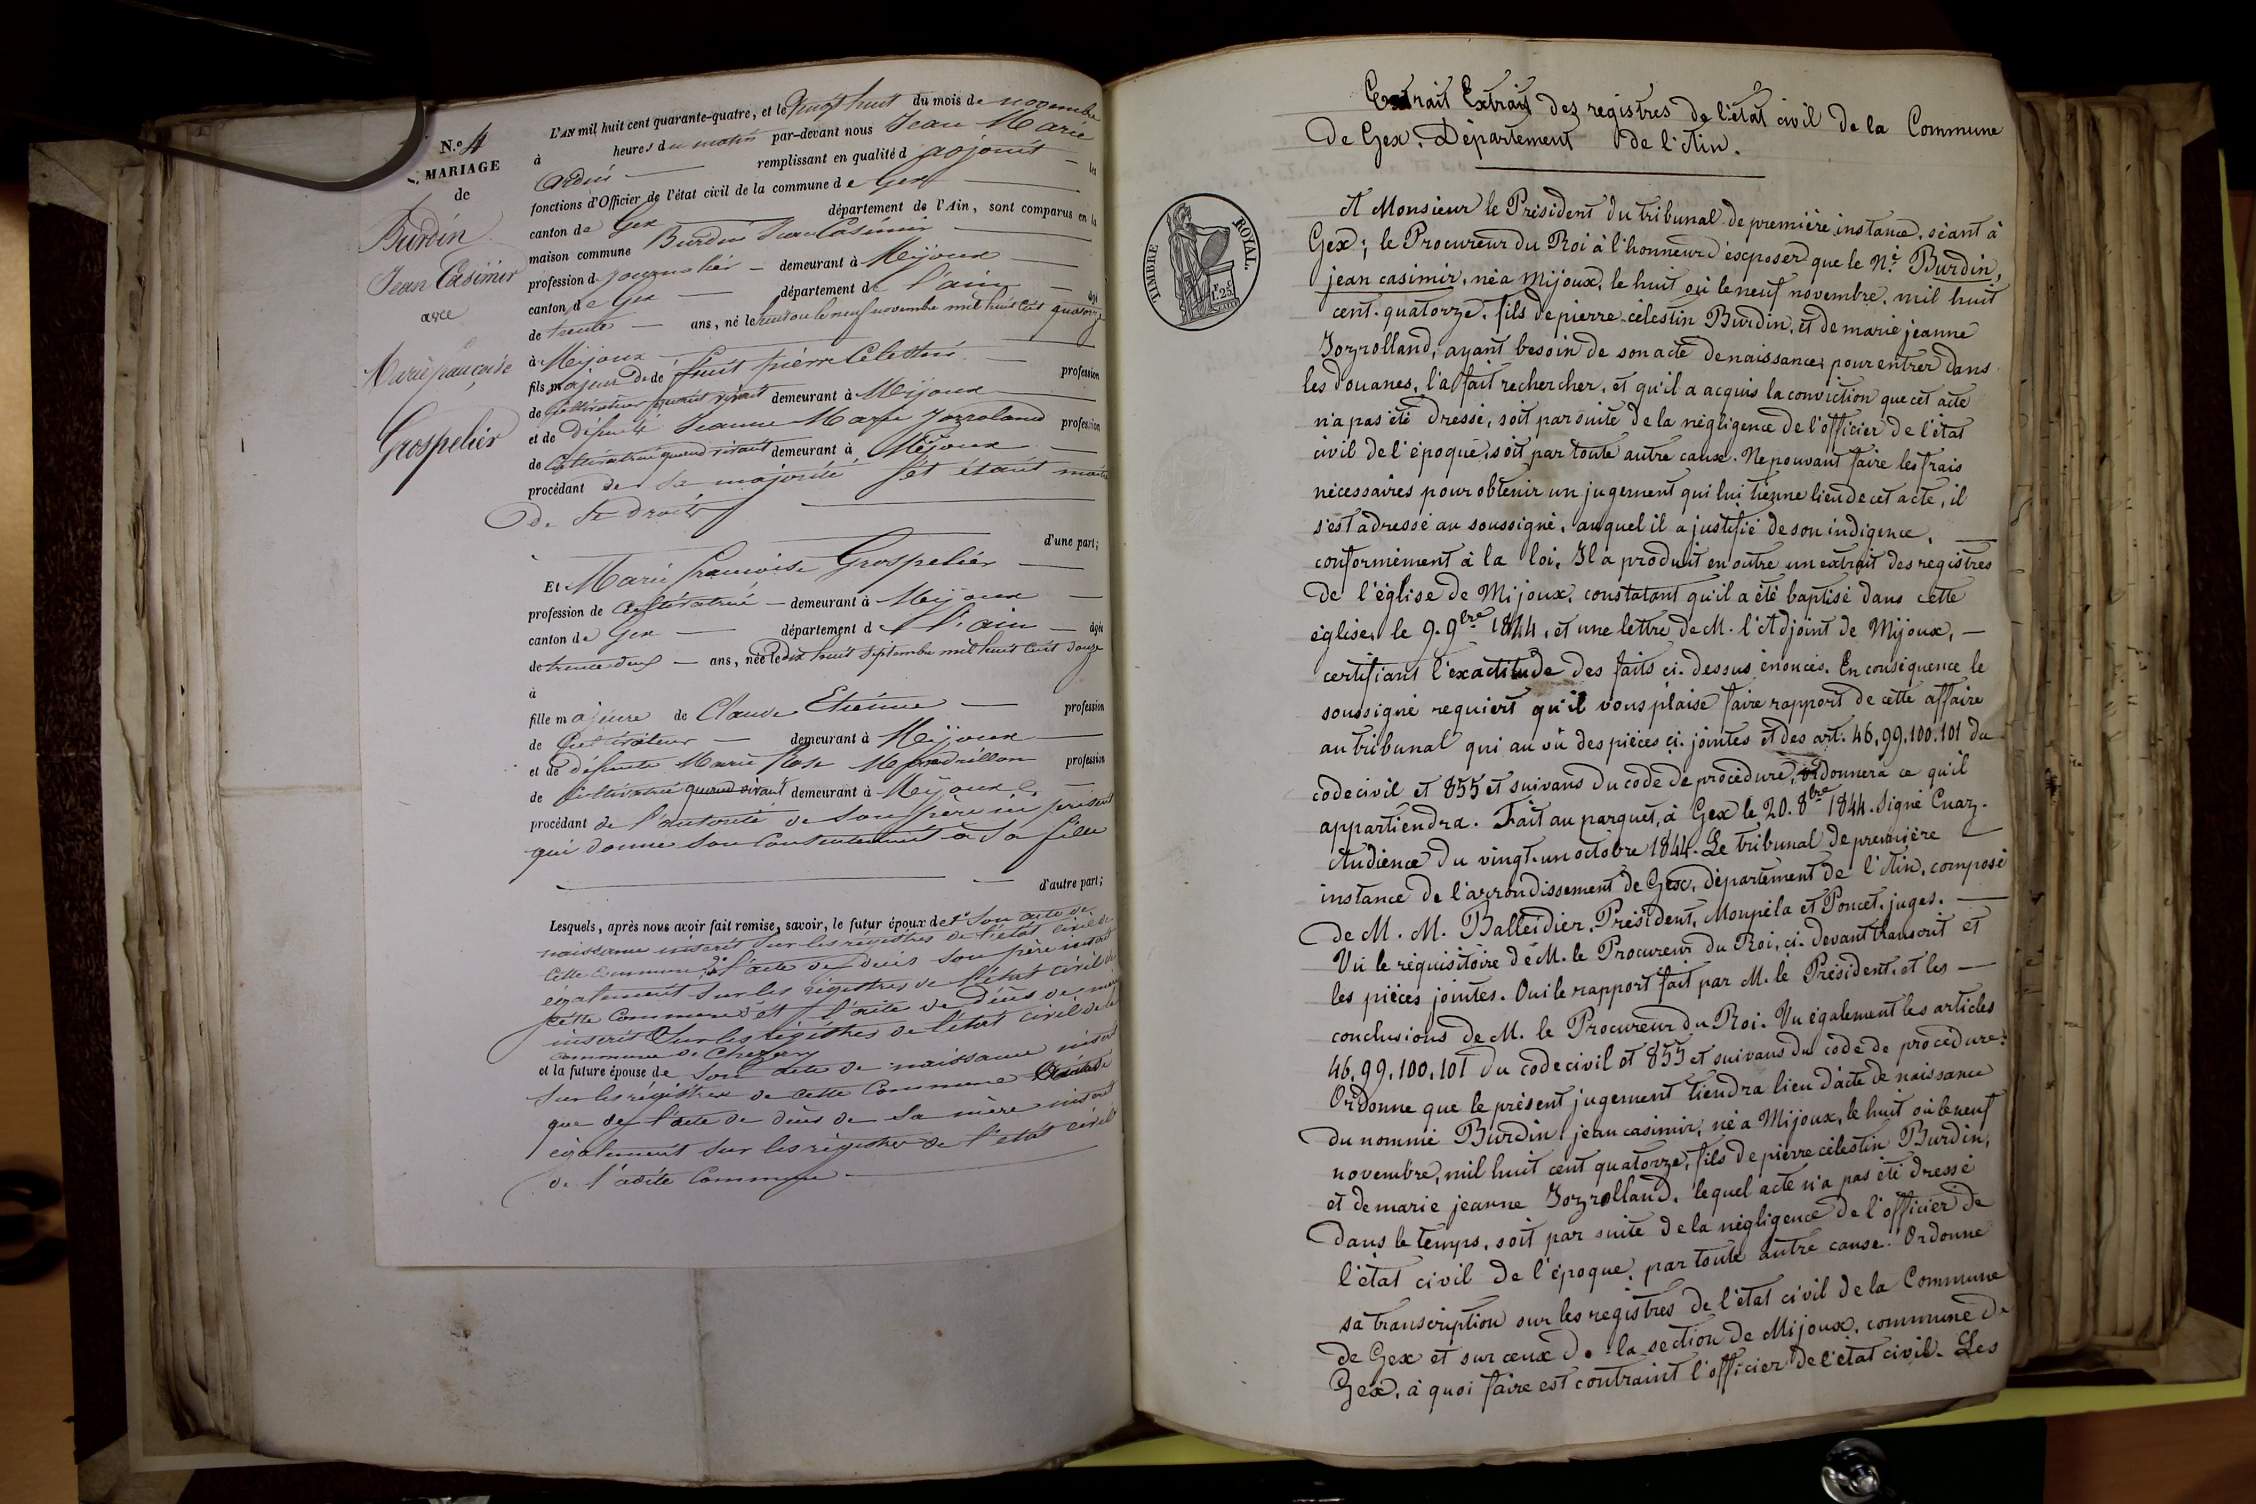 N.º 4
MARIAGE
de
Burdin
Jean Casimir
avec
Marie françoise
Grospelier
L'AN mil huit cent quarante-quatre, et le vingt huit du mois de novembre
à heures du matin par-devant nous Jean Marie
remplissant en qualité d'adjoint les
fonctions d'Officier de l'état civil de la commune de Gex
canton de Gex département de l'Ain, sont comparus en la
maison commune Burdin Jean Casimir
profession de journalier demeurant à Mijoux
canton de Gex département de l'ain âgé
de trente ans, né le huit ou le neuf novembre mil huit cent quatorze
à Mijoux
fils majeur de feu pierre Celestin profession
de Cultivateur quand vivait demeurant à Mijoux
et de défunte Jeanne Marie Jozroland profession
de Cultivatrice quand vivait demeurant à Mijoux
procédant de sa majorité et étant maitre
de se droits
d'une part;
Et Marie francoise Grospelier
profession de Cultivatrice demeurant à Mijoux
canton de Gex département de l'ain âgée
de trente deux ans, née le dix huit Septembre mil huit cent douze
à
fille majeure de Claude Etienne profession
de Cultivateur demeurant à Mijoux
et de défunte Marie Rose profession
de Cultivatrice quand vivant demeurant à Mijoux
procédant de l'autorité de son père ici présent
qui donne son Consentement à sa fille
d'autre part;
Lesquels, après nous avoir fait remise, savoir, le futur époux de 1º Son acte de
naissance inscrit sur les régistres de l'état civil de
cette Commune, 2º l'acte de décès son père inscrit
également sur les régistres de l'état civil de
cette Commune et l'acte de décès de sa mère
inscrit sur les régistres de l'état civil de la
commune de Chezery
et la future épouse de Son acte de naissance inscrit
sur les régistres de cette Commune
que de l'acte de décès de sa mère inscrit
également sur les régistres de l'etat civil
de l'adite Commune
Extrait Extrait des registres de l'état civil de la Commune
de Gex. Département de l'Ain.
TIMBRE ROYAL.
1F. 25C.
A Monsieur le Président du tribunal de première instance, séant à
Gex; le Procureur du Roi à l'honneur d'exposer que le N.é Burdin,
jean casimir, né a Mijoux, le huit où le neuf novembre, mil huit
cent quatorze, fils de pierre célestin Burdin, et de marie jeanne
Jozrolland, ayant besoin de son acte de naissance, pour entrer dans
les douanes, l'a fait rechercher, et qu'il a acquis la conviction que cet acte
n'a pas été dressé, soit par suite de la négligence de l'officier de l'état
civil de l'époque, soit par toute autre cause. Ne pouvant faire les frais
nécessaires pour obtenir un jugement qui lui tienne lieu de cet acte, il
s'est adressé au soussigné, auquel il a justifié de son indigence,
conformément à la loi. Il a produit en outre un extrait des registres
de l'église de Mijoux, constatant qu'il a été baptisé dans cette
église, le 9. 9bre 1844, et une lettre de M. l'Adjoint de Mijoux,
certifiant l'exactitude des faits ci-dessus énoncés. En conséquence le
soussigné requiert qu'il vous plaise faire rapport de cette affaire
au tribunal qui au vû des pièces ci-jointes et des art. 46, 99, 100, 101 du
code civil et 855 et suivans du code de procédure, ordonnera ce qu'il
appartiendra. Fait au parquet, à Gex le 20. 8bre 1844. Signé Cuaz.
Audience du vingt-un octobre 1844. Le tribunal de première
instance de l'arrondissement de Gex, département de l'Ain, composé
de M. M. Balleidier, Président, Monpéla et Poncet, juges.
Vu le réquisitoire de M. le Procureur du Roi, ci-devant transcrit et
les pièces jointes. Oui le rapport fait par M. le Président et les
conclusions de M. le Procureur du Roi. Vu également les articles
46, 99, 100, 101 du code civil et 855 et suivans du code de procédure:
Ordonne que le présent jugement tiendra lieu d'acte de naissance
du nommé Burdin jean casimir, né a Mijoux, le huit où le neuf
novembre, mil huit cent quatorze, fils de pierre célestin Burdin,
et de marie jeanne Jozrolland, lequel acte n'a pas été dressé
dans le temps, soit par suite de la négligence de l'officier de
l'état civil de l'époque, par toute autre cause. Ordonne
sa transcription sur les registres de l'état civil de la Commune
de Gex et sur ceux de la section de Mijoux, commune de
Gex, à quoi faire est contraint l'officier de l'état civil. Les